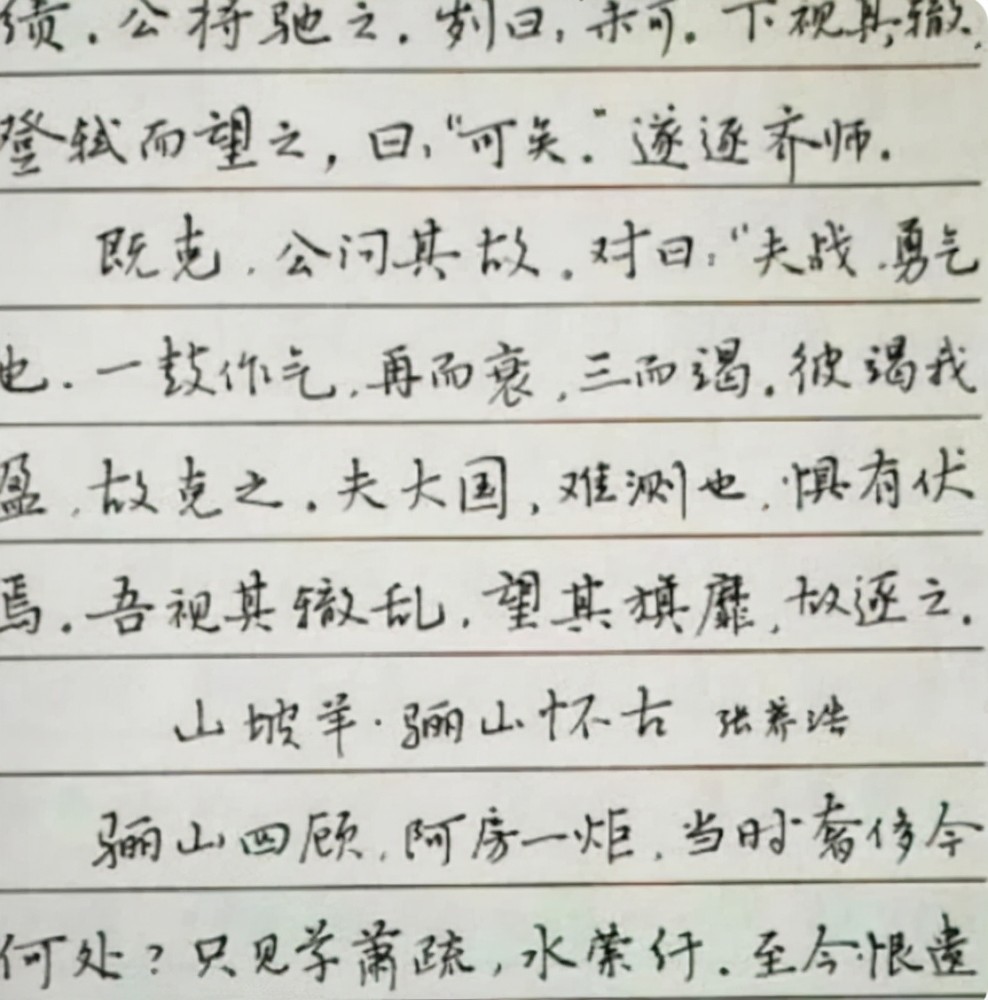 绩。公将驰之。刿曰："未可。"下视其辙，
登轼而望之，曰："可矣。"遂逐齐师。
既克，公问其故。对曰："夫战，勇气
也。一鼓作气，再而衰，三而竭。彼竭我
盈，故克之。夫大国，难测也，惧有伏
焉。吾视其辙乱，望其旗靡，故逐之。
山坡羊·骊山怀古 张养浩
骊山四顾，阿房一炬，当时奢侈今
何处？只见草萧疏，水萦纡。至今恨遗